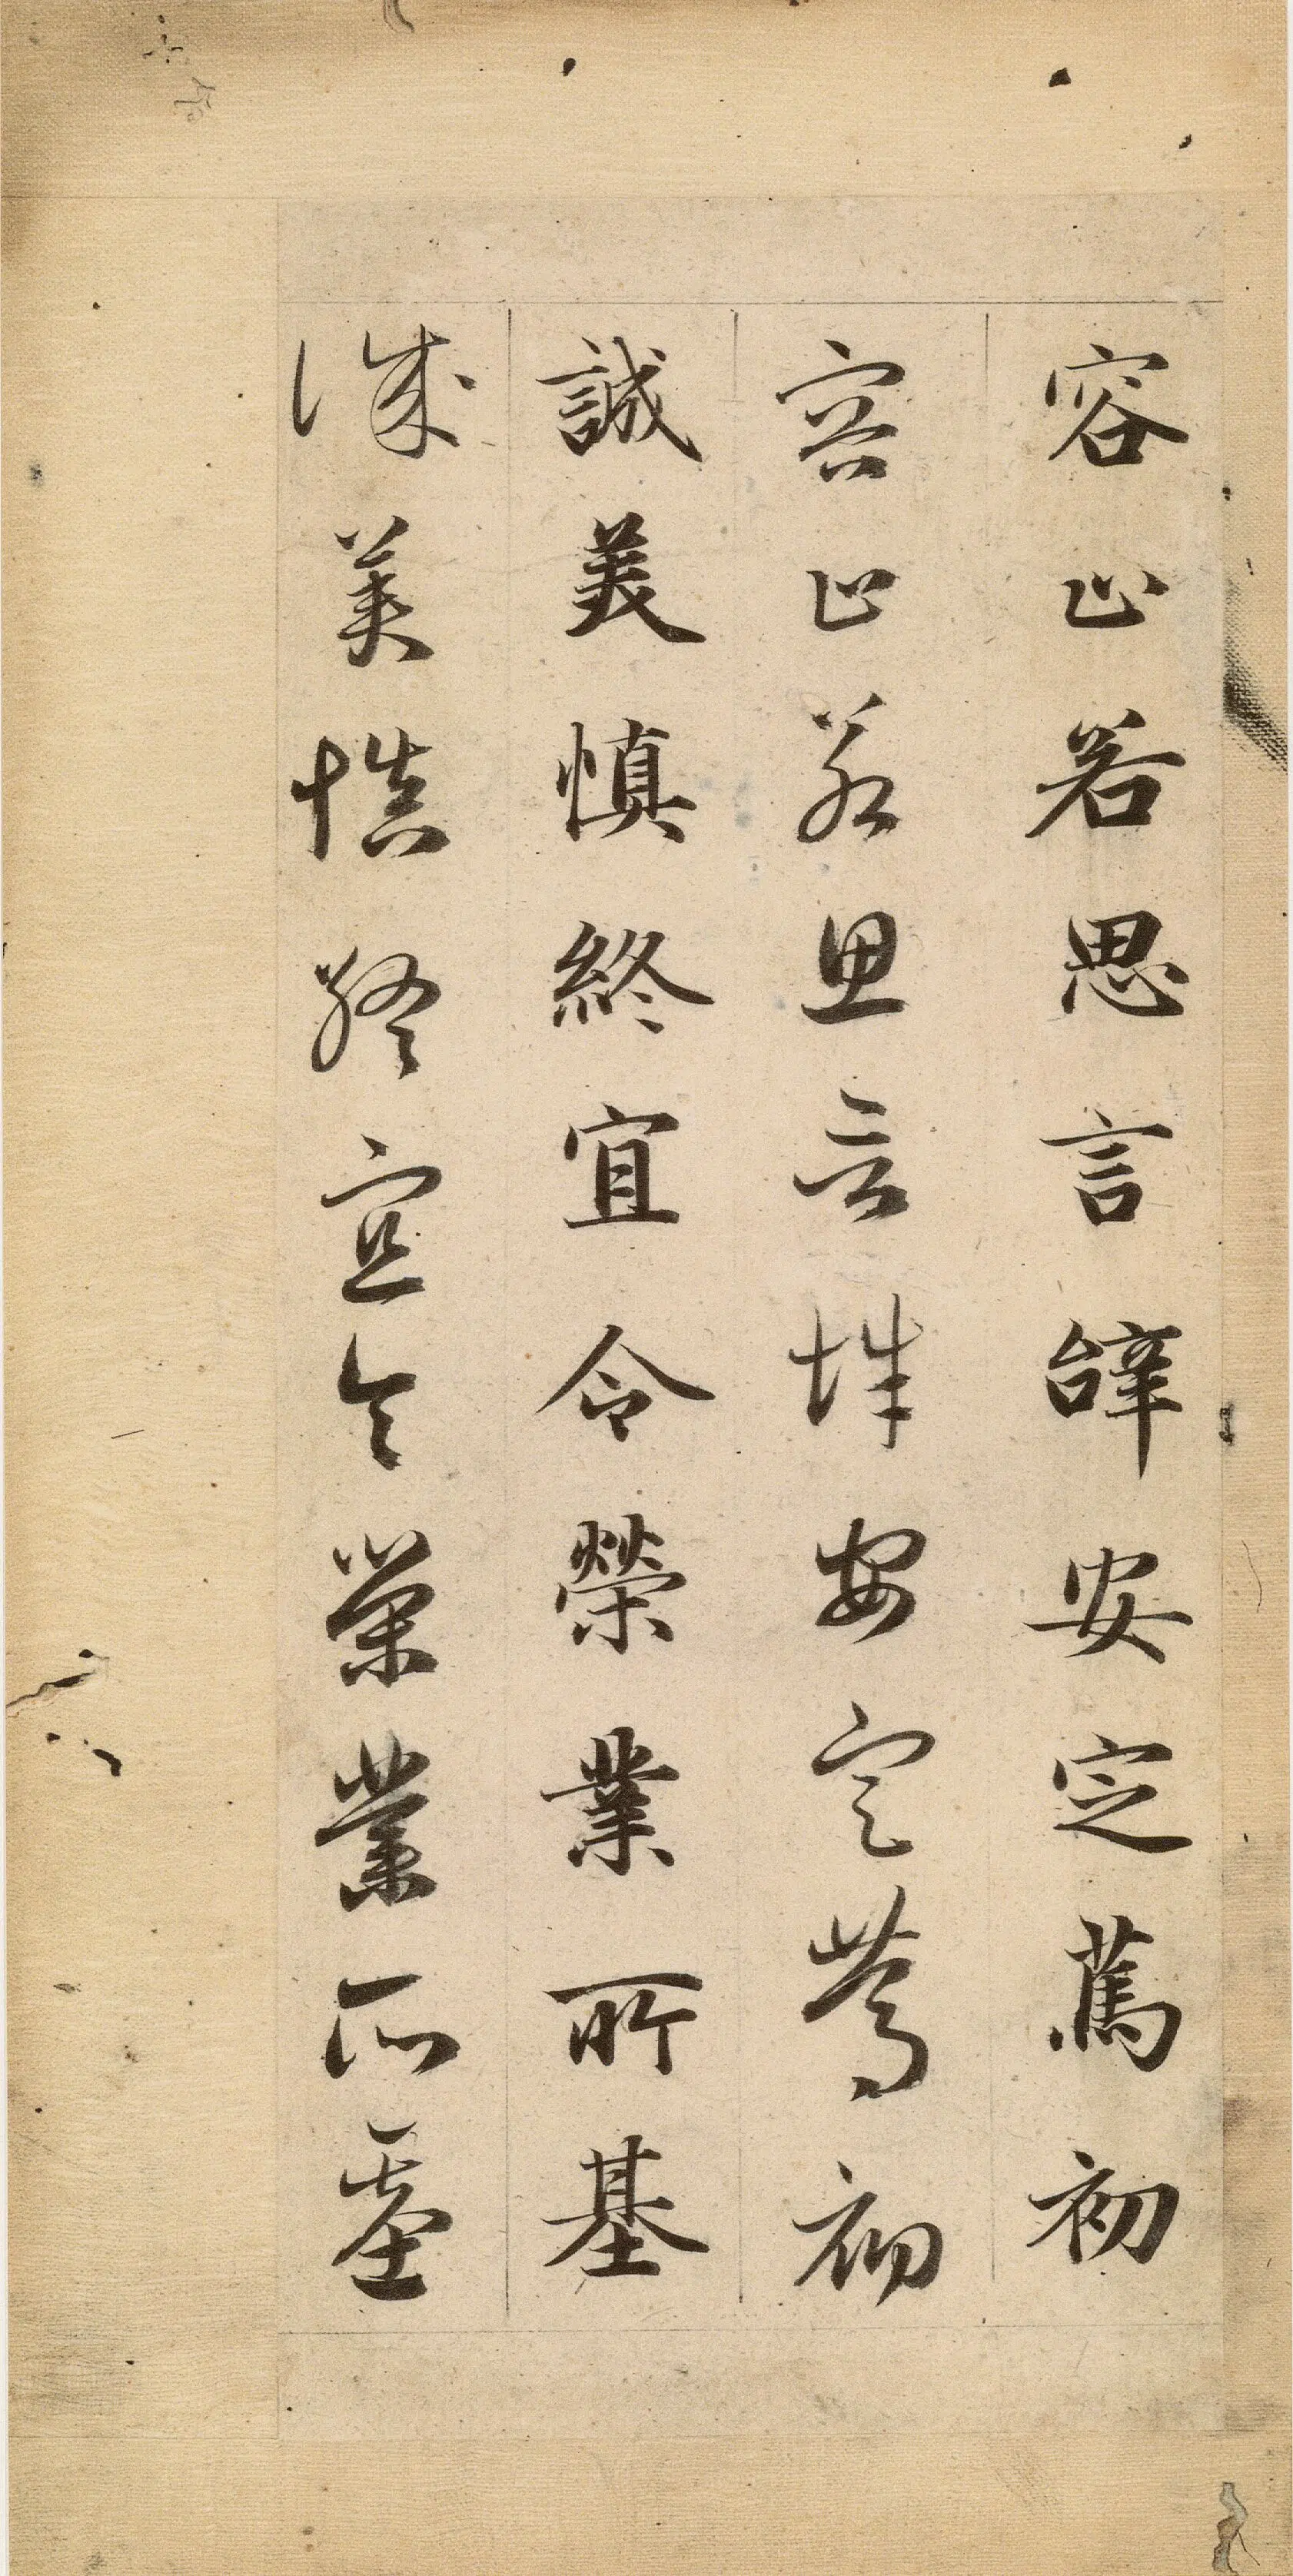 容止若思言辝安定萬初
容止若思言辝安定萬初
誠美慎終宜令榮業所基
誠美慎終宜令榮業所基